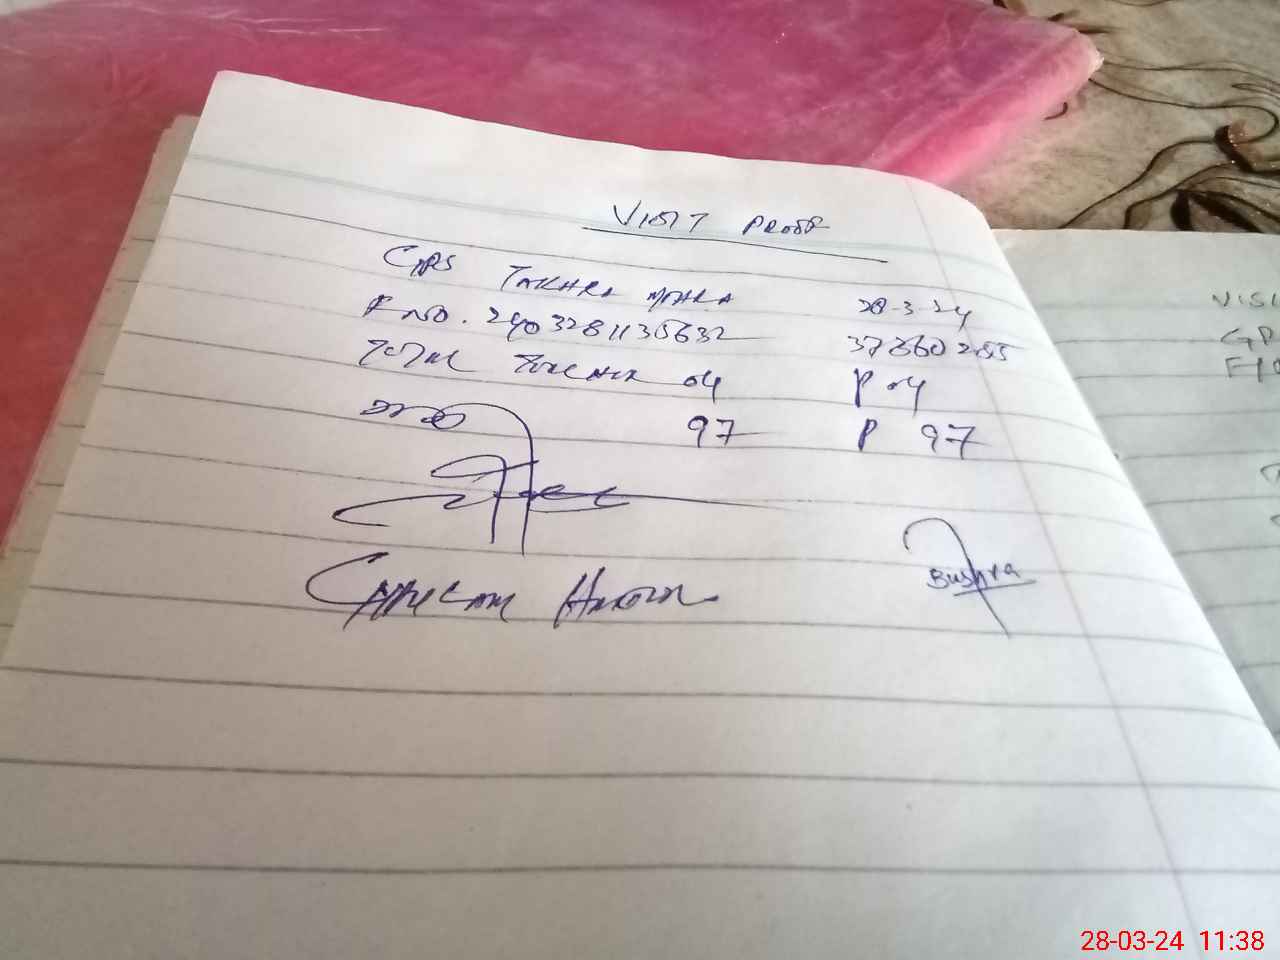 VISIT PROOF
GPS TAKHRA MOHRA 28-3-24
F NO. 2403281135632 37660255
TOTAL TEACHER 04 P 04
97 P 97
GHULAM
Bushra
VISI
GP
28-03-24 11:38